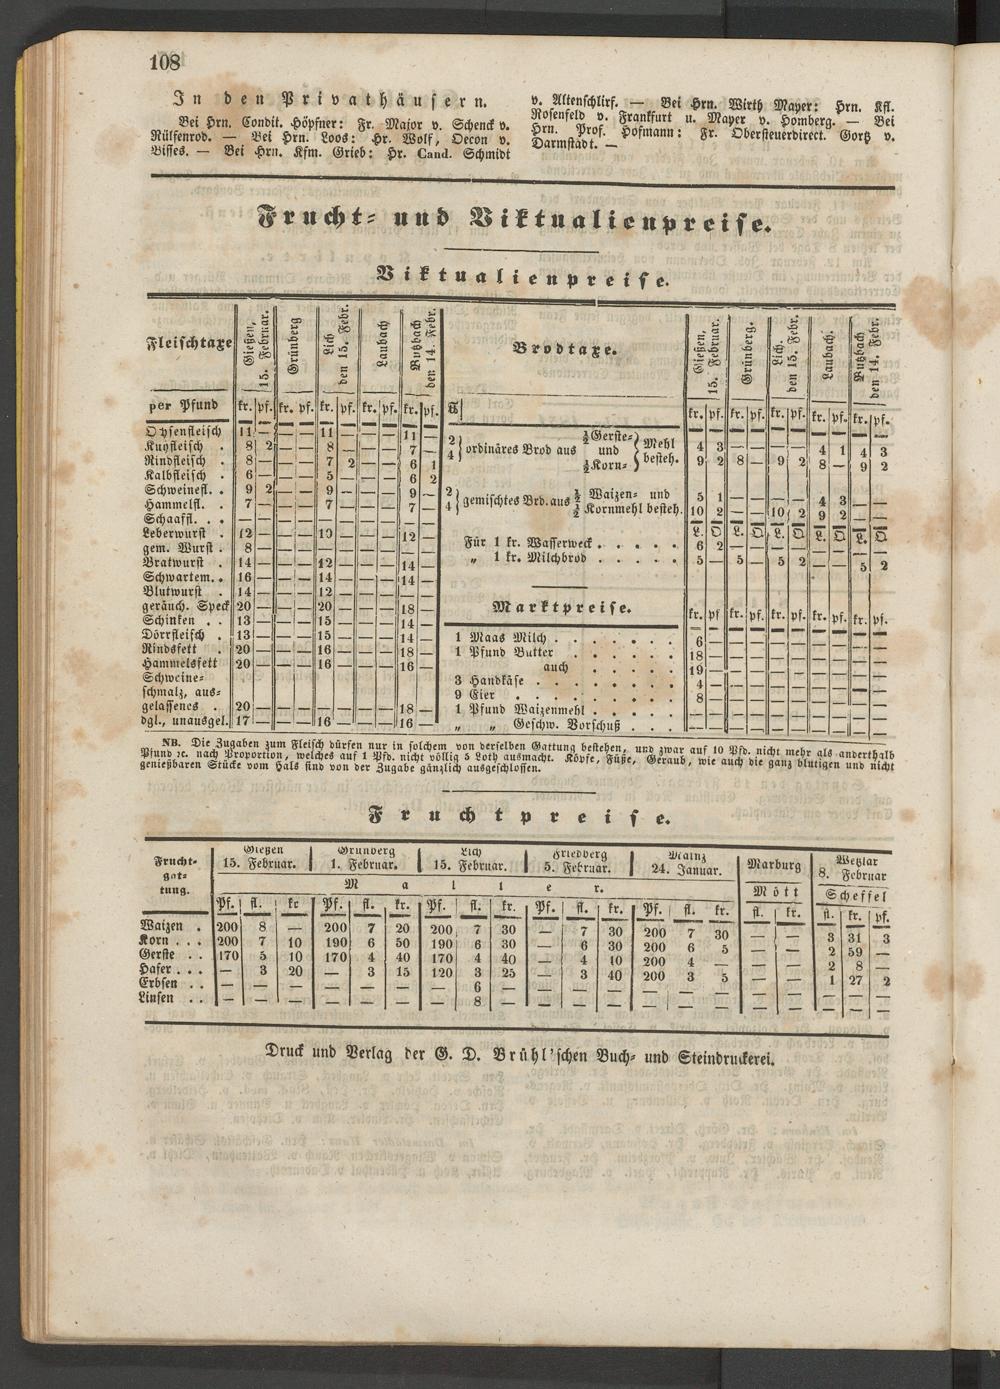 108
In den Privathäusern.
Bei Hrn. Condit. Höpfner: Fr. Major v. Schenck v.
Rülfenrod. — Bei Hrn. Loos: Hr. Wolf, Oecon v.
Bisses. — Bei Hrn. Kfm. Grieb: Hr. Cand. Schmidt
v. Altenschlirf. — Bei Hrn. Wirth Mayer: Hrn. Kfl.
Rosenfeld v. Frankfurt u. Mayer v. Homberg. — Bei
Hrn. Prof. Hofmann: Fr. Obersteuerdirect. Gortz v.
Darmstadt. —
Frucht- und Viktualienpreise.
Viktualienpreise.
Fleischtaxe | Gießen, 15. Februar. | Grünberg | Lich den 15. Febr. | Laubach | Butzbach den 14. Febr.
per Pfund | kr. pf. | kr. pf. | kr. pf. | kr. pf. | kr. pf.
Ochsenfleisch | 11 — | — — | 11 — | — — | 11 —
Kuhfleisch . | 8 2 | — — | 8 — | — — | 7 —
Rindfleisch . | 8 — | — — | 7 2 | — — | 6 1
Kalbfleisch . | 6 — | — — | 5 — | — — | 6 2
Schweinefl. . | 9 2 | — — | 9 — | — — | 9 —
Hammelfl. . | 7 — | — — | 7 — | — — | 7 —
Schaaffl. . . | — — | — — | — — | — — | — —
Leberwurst . | 12 — | — — | 10 — | — — | 12 —
gem. Wurst . | 8 — | — — | — — | — — | — —
Bratwurst . | 14 — | — — | 12 — | — — | 14 —
Schwartem. . | 16 — | — — | 14 — | — — | 14 —
Blutwurst . | 14 — | — — | 12 — | — — | — —
geräuch. Speck | 20 — | — — | 20 — | — — | 18 —
Schinken . . | 13 — | — — | 15 — | — — | 14 —
Dörrfleisch . | 13 — | — — | 15 — | — — | 14 —
Rindsfett . | 20 — | — — | 16 — | — — | 18 —
Hammelsfett | 20 — | — — | 16 — | — — | 16 —
Schweine-
schmalz, aus-
gelassenes . | 20 — | — — | — — | — — | 18 —
dgl., unausgel. | 17 — | — — | 16 — | — — | 16 —
Brodtaxe. | Gießen, 15. Februar. | Grünberg. | Lich. den 15. Febr. | Laubach. | Butzbach den 14. Febr.
℔ | kr. pf. | kr. pf. | kr. pf. | kr. pf. | kr. pf.
2 } ordinäres Brod aus ½ Gerste- und ½ Korn- } Mehl besteh. | 4 3 | — — | — — | 4 1 | 4 3
4 | 9 2 | 8 — | 9 2 | 8 — | 9 2
2 } gemischtes Brd. aus ½ Waizen- und ½ Kornmehl besteh. | 5 1 | — — | — — | 4 3 | — —
4 | 10 2 | — — | 10 2 | 9 2 | — —
L. Q | L. Q | L. Q | L. Q | L. Q
Für 1 kr. Wasserweck . . . . . | 6 2 | — — | — — | | — —
„ 1 kr. Milchbrod . . . . . | 5 — | 5 — | 5 2 | | 5 2
Marktpreise. | kr. pf | kr. pf. | kr. pf. | kr. pf. | kr. pf.
1 Maas Milch . . . . . . . | 6 —
1 Pfund Butter . . . . . . | 18 —
auch . . . . . . | 19 —
3 Handkäse . . . . . . . . | 4 —
9 Eier . . . . . . . . | 8 —
1 Pfund Waizenmehl . . . . . | — —
„ „ Geschw. Vorschuß . . . | — —
NB. Die Zugaben zum Fleisch dürfen nur in solchem von derselben Gattung bestehen, und zwar auf 10 Pfd. nicht mehr als anderthalb
Pfund ꝛc. nach Proportion, welches auf 1 Pfd. nicht völlig 5 Loth ausmacht. Köpfe, Füße, Geraub, wie auch die ganz blutigen und nicht
genießbaren Stücke vom Hals sind von der Zugabe gänzlich ausgeschlossen.
Fruchtpreise.
Frucht-gat-tung. | Gießen 15. Februar. | Grünberg 1. Februar. | Lich 15. Februar. | Friedberg 5. Februar. | Mainz 24. Januar. | Marburg | Wetzlar 8. Februar
Malter. | Mött | Scheffel
Pf. fl. kr | Pf. fl. kr. | Pf. fl. kr. | Pf. fl. kr. | Pf. fl. kr. | fl. kr. | fl. kr. pf.
Waizen . | 200 8 — | 200 7 20 | 200 7 30 | — 7 30 | 200 7 30 | — — | 3 31 3
Korn . . . | 200 7 10 | 190 6 50 | 190 6 30 | — 6 30 | 200 6 5 | — — | 2 59 —
Gerste . . | 170 5 10 | 170 4 40 | 170 4 40 | — 4 10 | 200 4 — | — — | 2 8 —
Hafer . . . | — 3 20 | — 3 15 | 120 3 25 | — 3 40 | 200 3 5 | — — | 1 27 2
Erbsen . . | — — — | — — — | — 6 — | — — — | — — — | — — | — — —
Linsen . . | — — — | — — — | — 8 — | — — — | — — — | — — | — — —
Druck und Verlag der G. D. Brühl'schen Buch- und Steindruckerei.